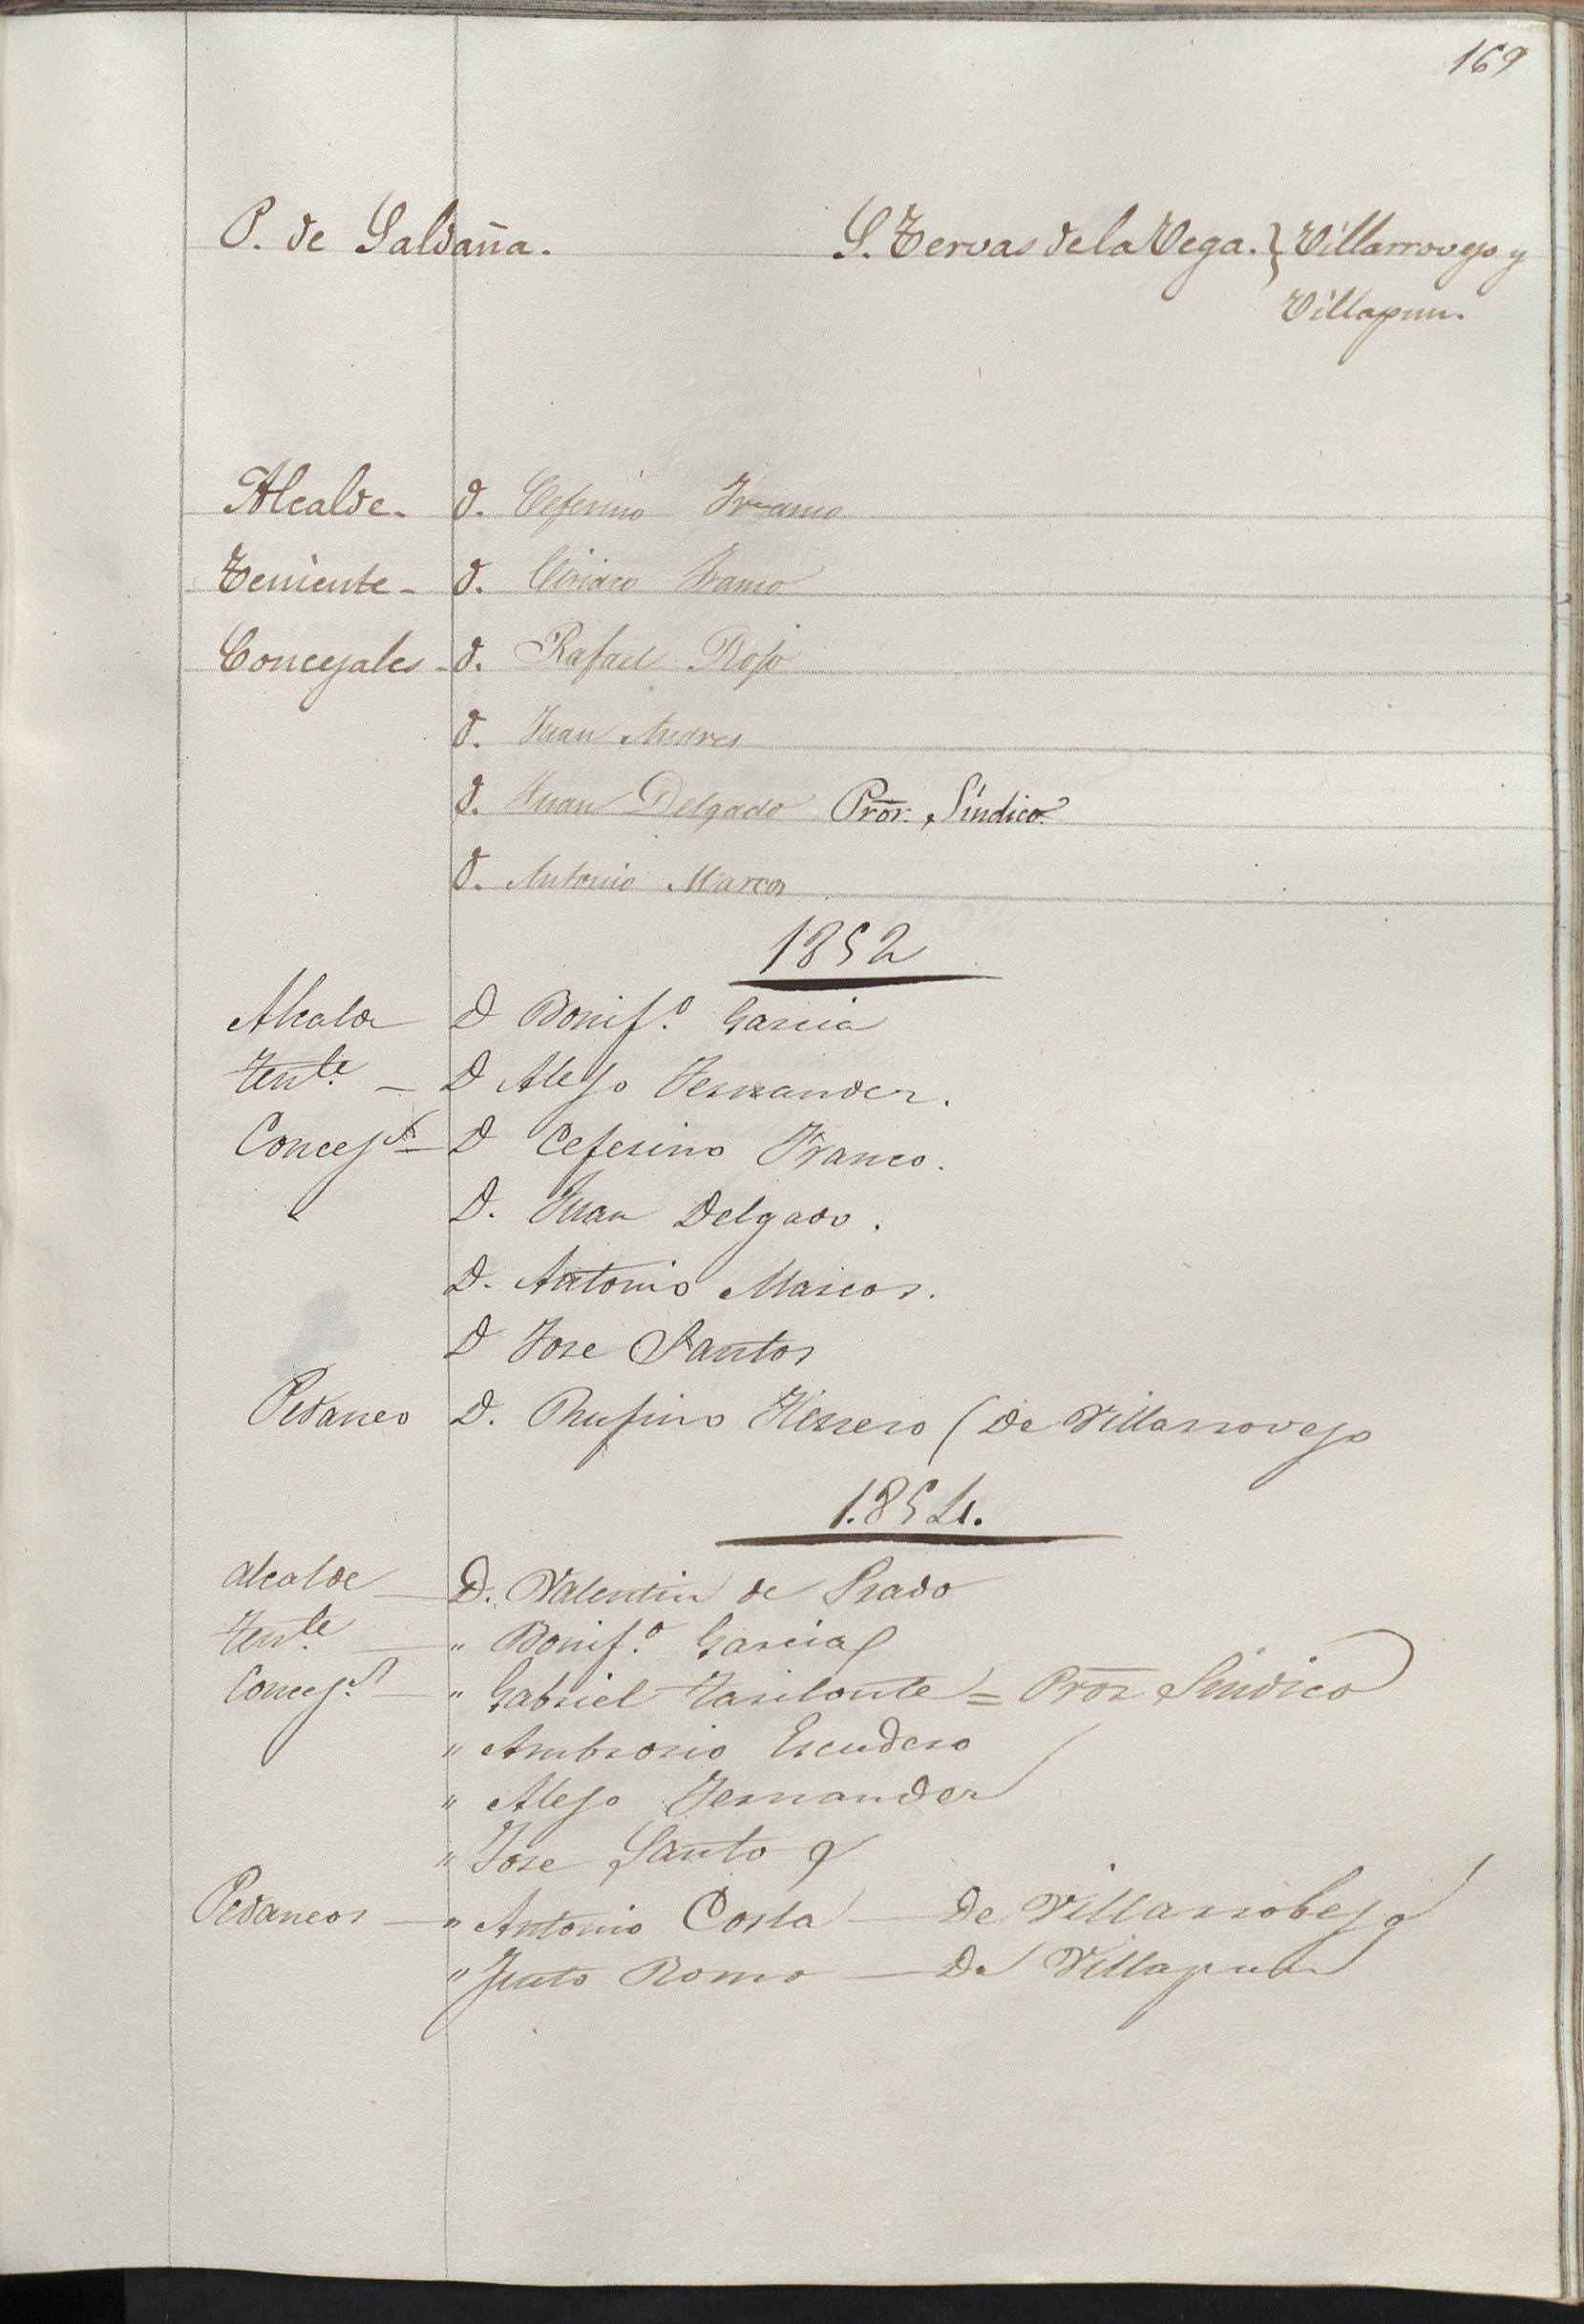 169
P. de Saldaña. S. Zervas de la Vega. } Villarrovejo y
Villapun.
Alcalde. D. Ceferino Franco
Teniente - D. Ciriaco Franco
Concejales - D. Rafael Rojo
D. Juan Andres
D. Juan Delgado Pror. Síndico.
D. Antonio Marcos
1852
Alcalde D Bonif.º Garcia
Tente. - D Alejo Fernandez.
Concejs. - D Ceferino Franco.
D. Juan Delgado.
D. Antonio Marcos.
D Jose Santos
Pedaneo D. Rufino Herrero (De Villarrovejo
1.854.
Alcalde - D. Valentin de Prado
Tente. - " Bonif.º Garcia
Concejs. - " Gabriel Tarilonte = Pror Sindico
" Ambrosio Escudero
" Alejo Fernandez
" Jose Santos
Pedaneos - " Antonio Costa - De Villarrobejo
" Justo Romo - De Villapun